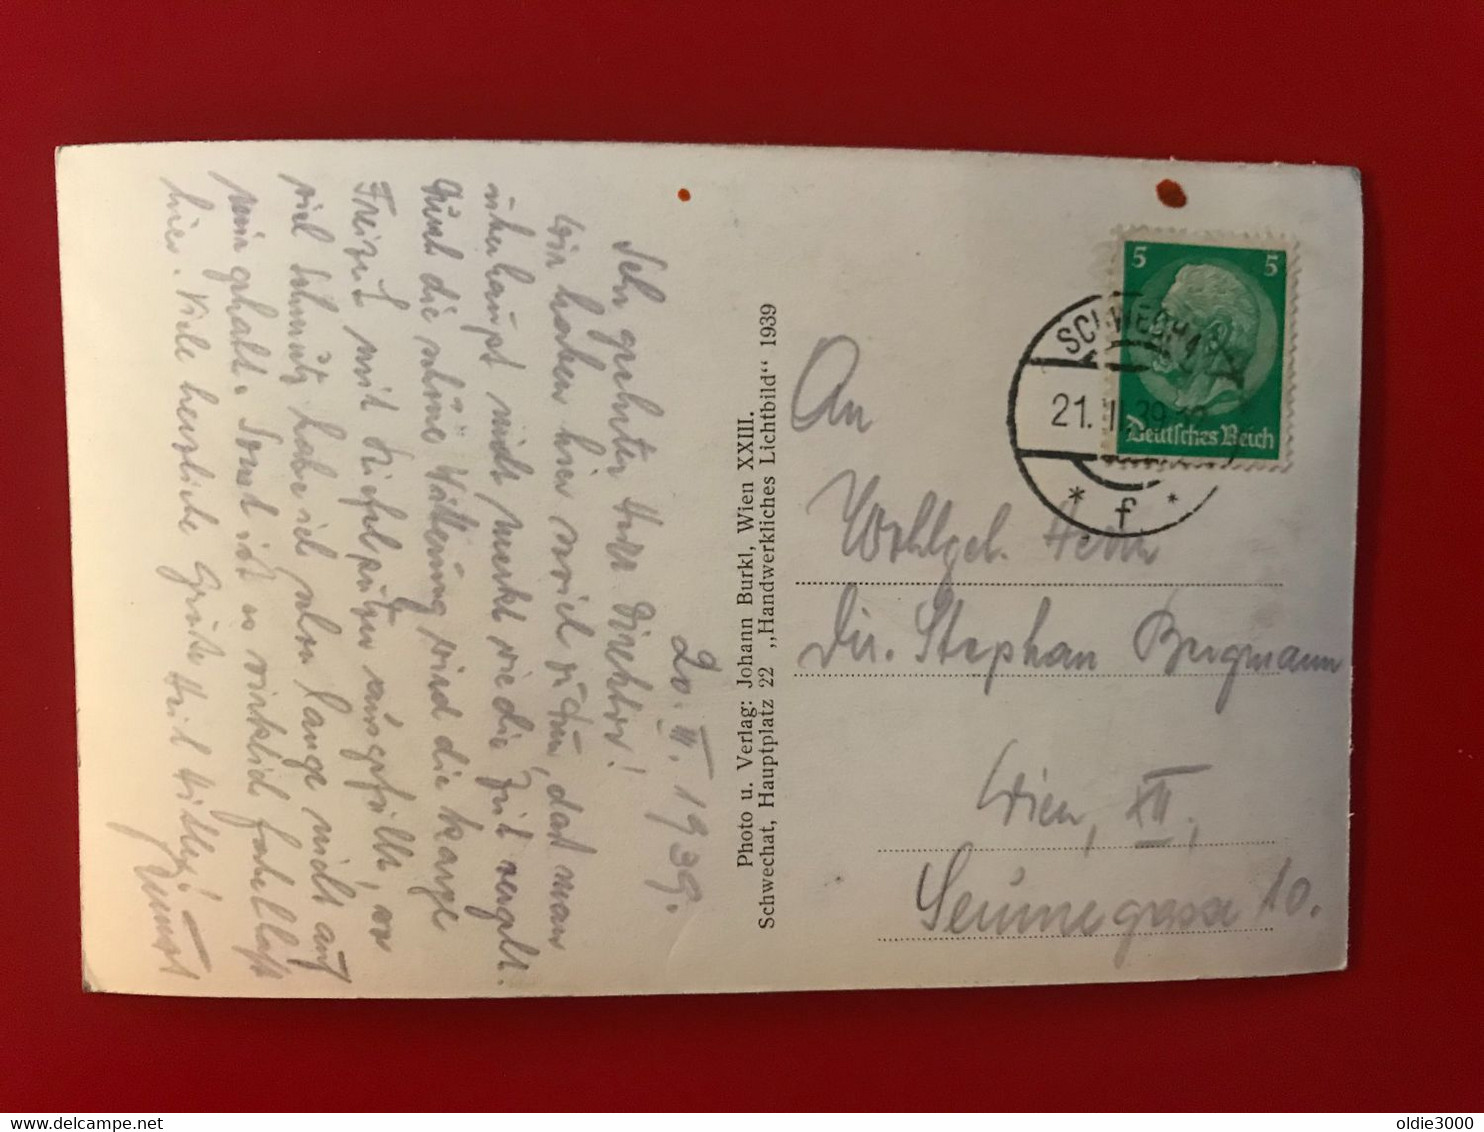 20. III. 1939.
Sehr geehrter Herr Direktor!
Wir haben hier soviel zu tun, daß man
überhaupt nicht merkt wie die Zeit vergeht.
Durch die schöne Witterung wird die karge
Freizeit mit ausgefüllt, so
viel Schmutz habe ich schon lange nicht auf
mir gehabt. Sonst ist es wirklich fabelhaft
hier. Viele herzliche Grüße Heil Hitler!
Photo u. Verlag: Johann Burkl, Wien XXIII.
Schwechat, Hauptplatz 22 „Handwerkliches Lichtbild“ 1939
5 5
Deutsches Reich
SCHWECHAT
21. III. 39
* f *
An
Wohlgeb. Herrn
Dir. Stephan Bergmann
Wien, XII,
Seumegasse 10.
oldie3000